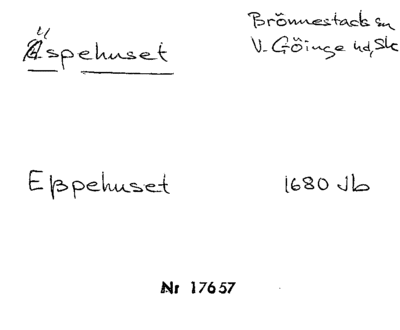 Äspehuset
Brönnestads sn
V. Göinge hd, Sk
Eßpehuset 1680 Jb
Nr 17657